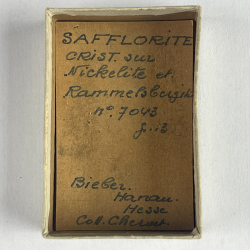 SAFFLORITE
CRIST. sur
Nickelite et
Rammelsbergite
n° 7043
Bieber.
Hanau.
Hesse
Col.